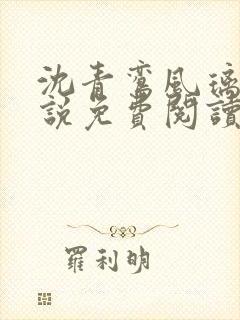 沈青鸞風璃
說免費閱讀
羅利明